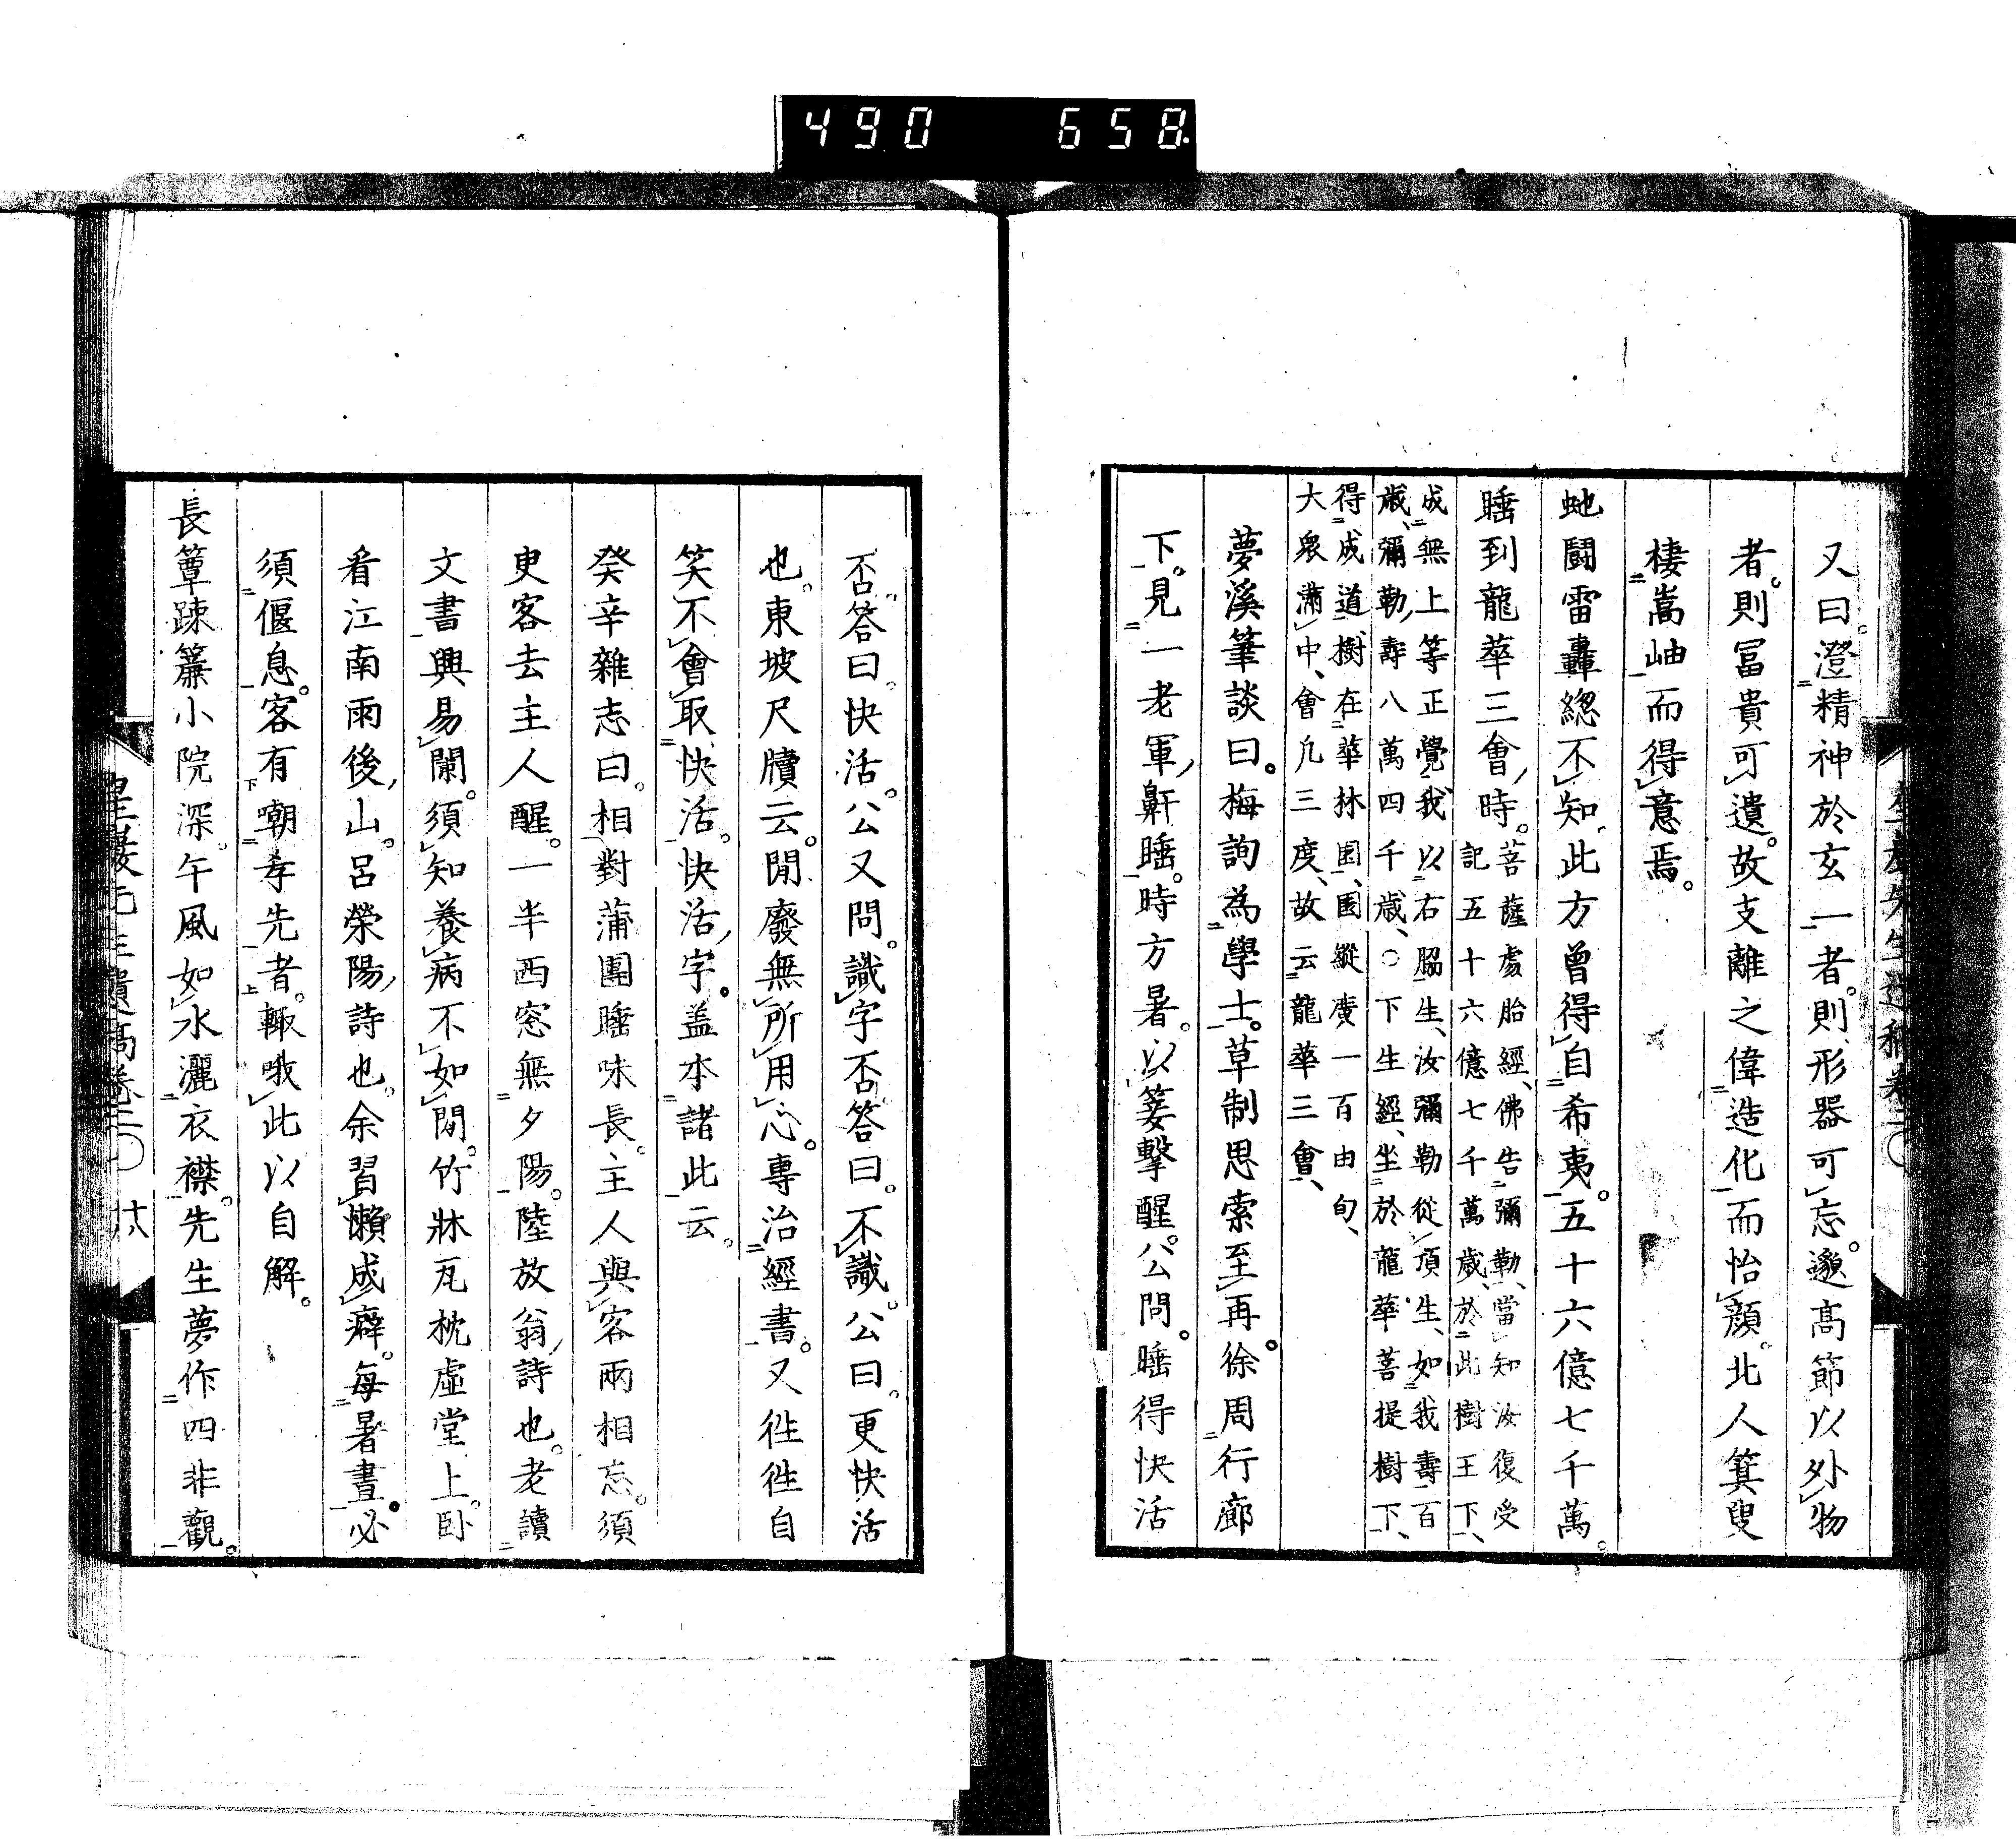 490 658
又曰。澄精神於玄一者。則形器可忘。邈高節以外物
者。則冨貴可遺。故支離之偉造化而怡顏。北人箕叟
棲嵩岫而得意焉。
虵鬪雷轟緫不知、此方曾得自希夷。五十六億七千萬。
睡到龍華三會時。菩薩處胎經、佛告彌勒、當知汝復受
記五十六億七千萬歲、於此樹王下、
成無上等正覺、我以右脇生、汝彌勒從頂生、如我壽百
歲、彌勒壽八萬四千歲、○下生經、坐於龍華菩提樹下、
得成道、樹在華林園、園縱廣一百由旬、
大衆滿中、會凡三度、故云龍華三會、
夢溪筆談曰。梅詢為學士。草制思索至再。徐周行廊
下。見一老軍鼾睡。時方暑。以箑擊醒。公問。睡得快活
否。答曰。快活。公又問。識字否。答曰。不識。公曰。更快活
也。東坡尺牘云。閒廢無所用心。專治經書。又徃徃自
笑不會取快活。快活字。盖本諸此云。
癸辛雜志曰。相對蒲團睡味長。主人與客兩相忘。須
臾客去主人醒。一半西窓無夕陽。陸放翁詩也。老讀
文書興易闌。須知養病不如閒。竹牀瓦枕虛堂上。卧
看江南雨後山。呂榮陽詩也。余習懶成癖。每暑晝。必
須偃息。客有嘲孝先者。輙哦此以自解。
長簟踈簾小院深。午風如水灑衣襟。先生夢作四非觀。